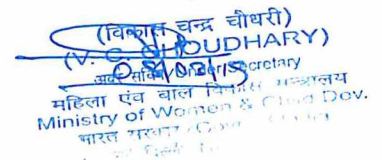 (विकास चन्द्र चौधरी)
(V. C. CHOUDHARY)
अवर सचिव/Under Secretary
महिला एंव बाल विकास मन्त्रालय
Ministry of Women & Child Dev.
भारत सरकार